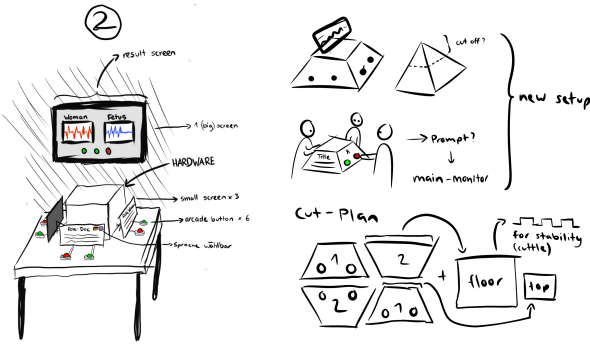 2
result screen
Woman Fetus
1 (big) screen
HARDWARE
small screen x 3
arcade button x 6
Sprache wählbar
cut off?
new setup
Title
→ Prompt?
main-monitor
Cut-Plan
1
2
2
1
+
floor
top
for stability
(cuttle)